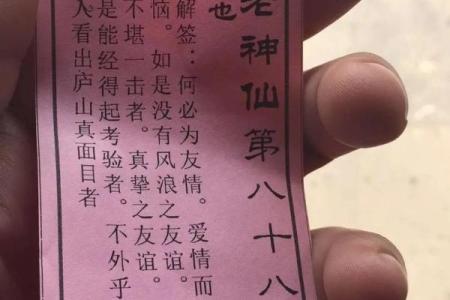 老神仙第八十八
也
解签：何必为友情。爱情而
恼。如是没有风浪之友谊。
不堪一击者。真挚之友谊。
是能经得起考验者。不外乎
人看出庐山真面目者